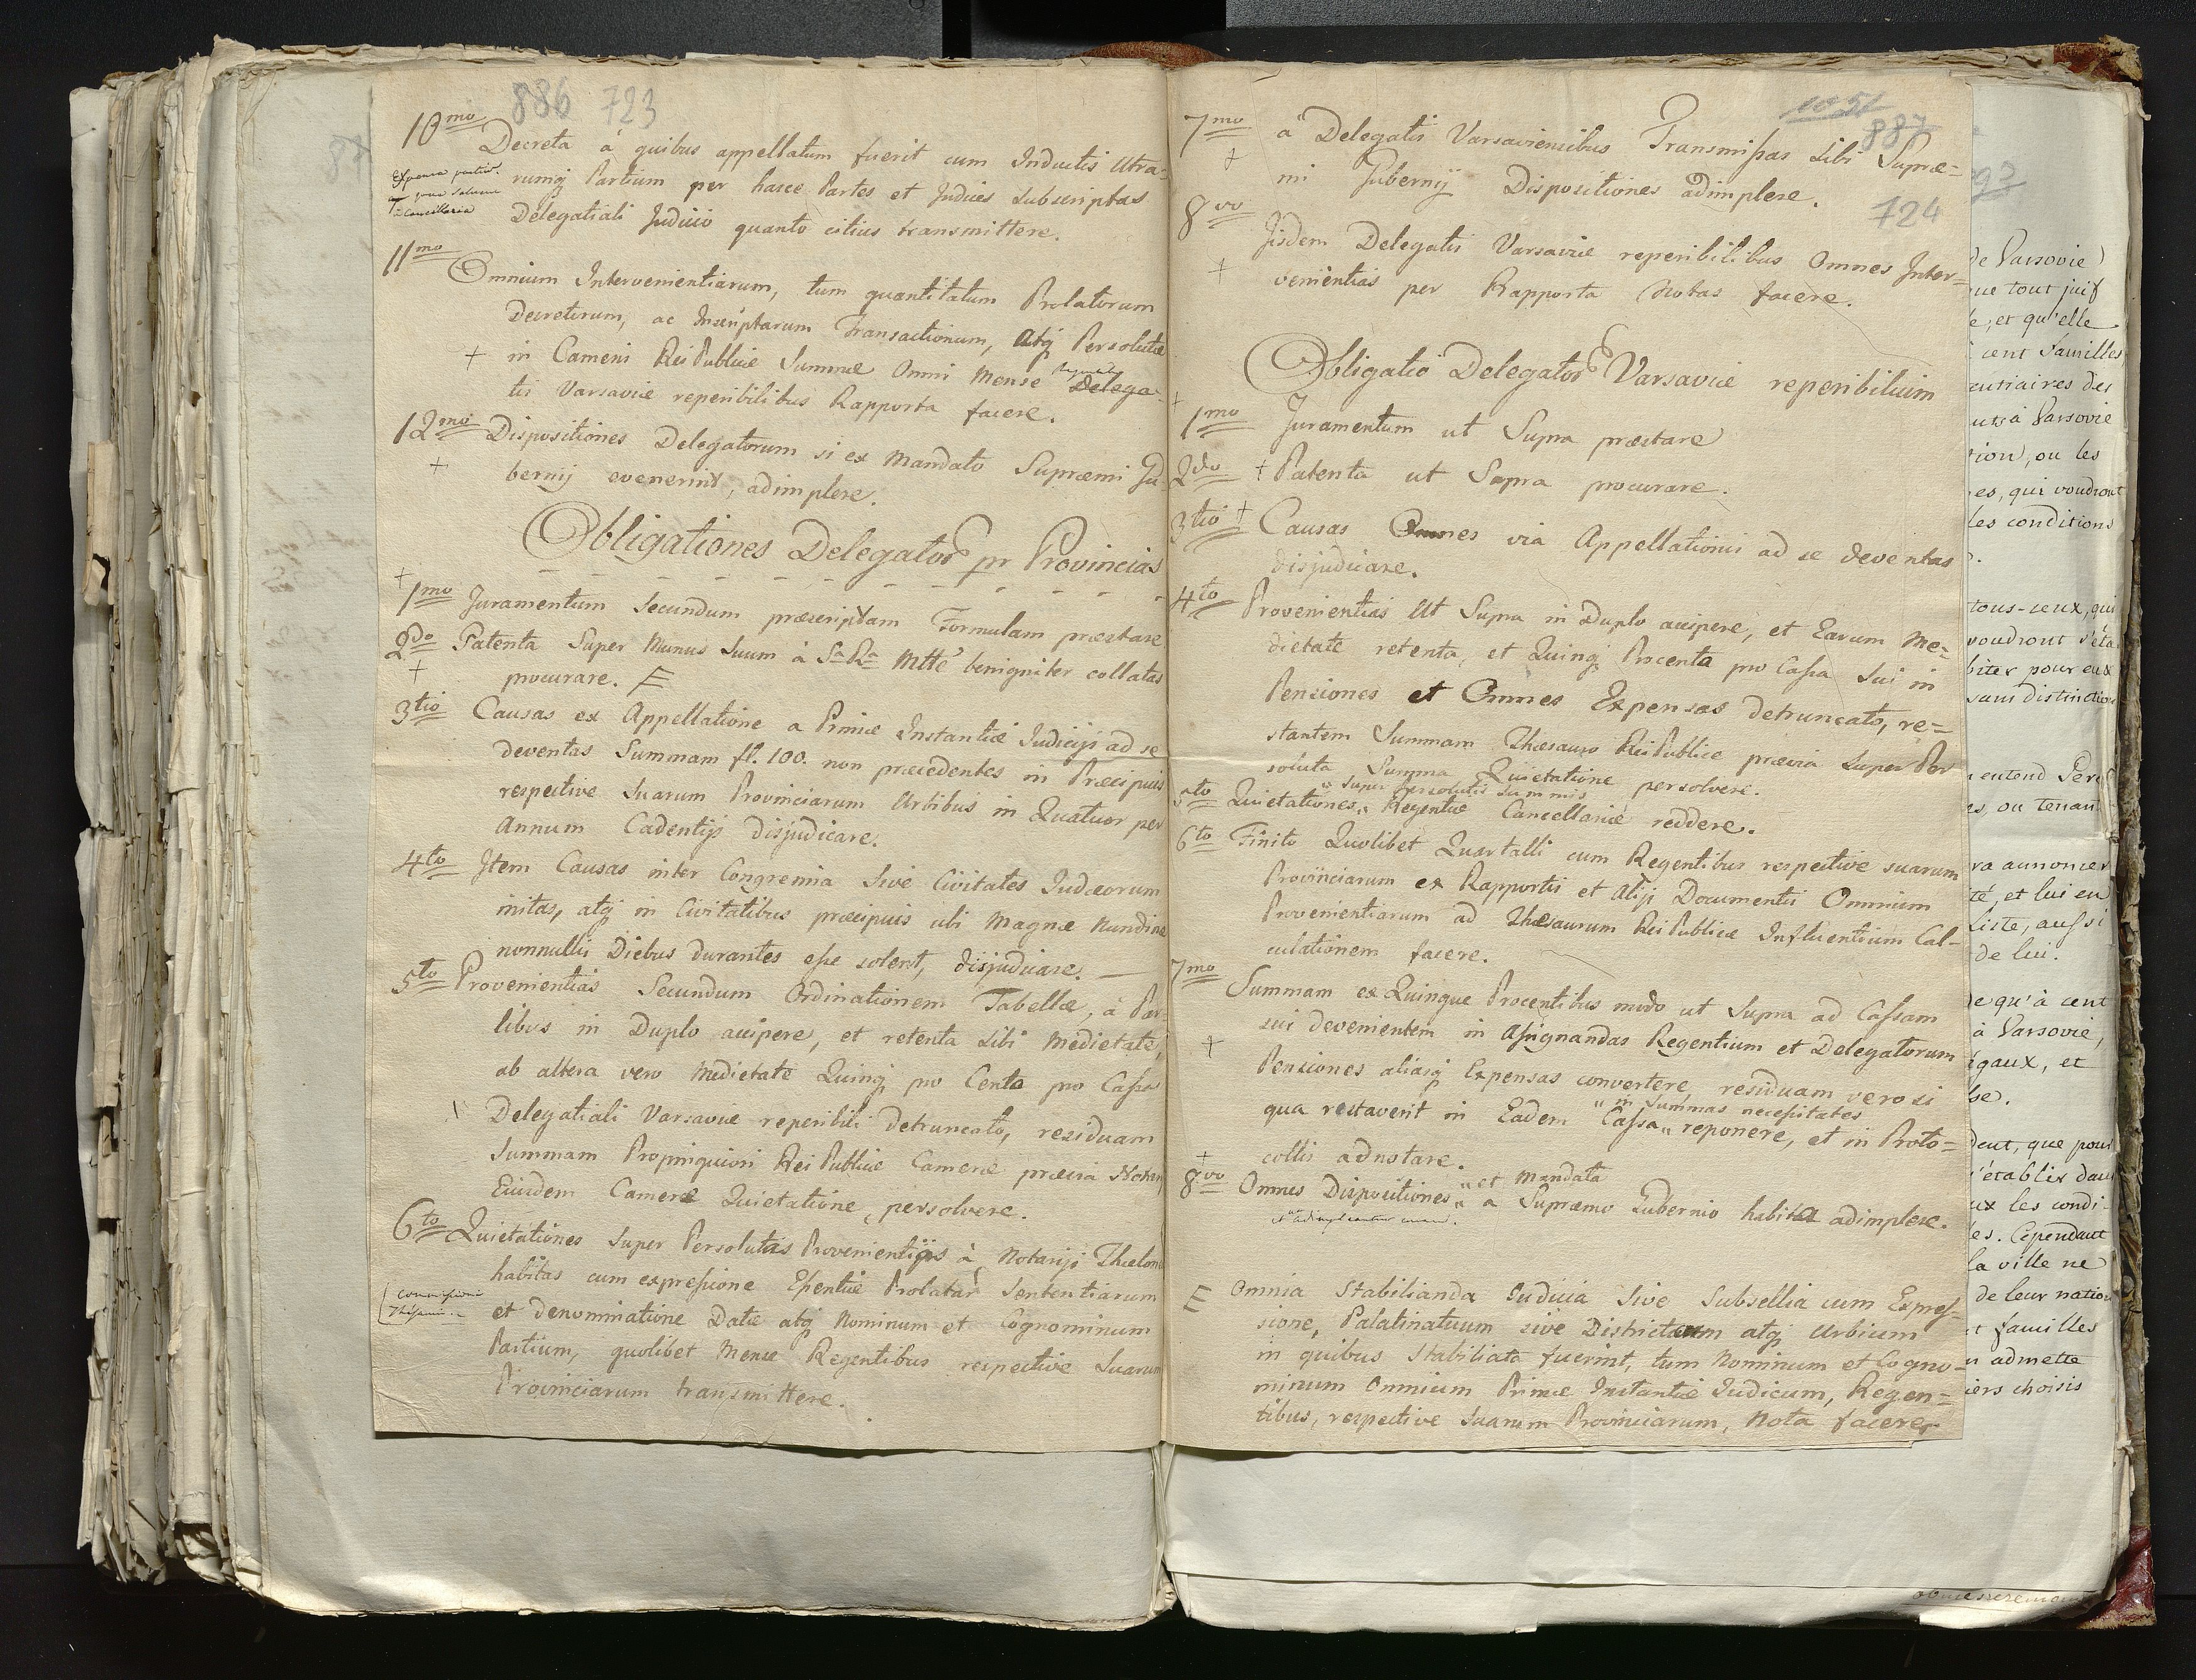 886 723
10mo Decreta à quibus appellatum fuerit cum Inductis Utra-
rumq; Partium per hasce Partes et Judices Subscriptas
Delegatiali Judicio quanto citius transmittere.
Expensa
à Cancellaria
11mo Omnium Intervenientiarum, tum quantitatum Prolatorum
Decretorum, ac Inscriptarum Transactionum, atq; Persolutæ
+ in Cameris Rei Publicæ Summæ Omni Mense Delega-
tis Varsaviæ reperibilibus Rapporta facere.
12mo Dispositiones Delegatorum si ex Mandato Supræmi Gu-
+ bernij evenerint, adimplere.
Obligationes Delegator pr Provincias
+
1mo Juramentum Secundum præscriptam Formulam præstare
2do Patenta Super Munus Suum à Sa Ra Mtte benigniter collatas
+ procurare. E
3tio Causas ex Appellatione a Primæ Instantiæ Judicijs ad se
deventas Summam fl. 100. non præcedentes in Præcipuis
respective Suarum Provinciarum Urbibus in Quatuor per
Annum Cadentijs disjudicare.
4to Item Causas inter Congremia Sive Civitates Judæorum
initas, atq; in Civitatibus præcipuis ubi Magnæ Nundinæ
nonnullis Diebus durantes esse solent, disjudicare. —
5to Provenientias Secundum Ordinationem Tabellæ, à Par-
tibus in Duplo accipere, et retenta Sibi Medietate,
ab altera vero Medietate Quinq; pro Centa pro Cassa
Delegatiali Varsaviæ reperibili detruncato, residuam
Summam Propinquiori Rei Publicæ Cameræ prævia Notarij
Eiusdem Cameræ Quietatione, persolvere.
6to Quietationes Super Persolutas Provenientijas à Notarijs Thelonei
habitas cum expressione Essentiæ Prolatar Sententiarum
et denominatione Datæ atq; Nominum et Cognominum
Partium, quolibet Mense Regentibus respective Suarum
Provinciarum transmittere.
1051
887
724
7mo à Delegatis Varsaviensibus Transmissas Sibi Supræ-
+ mi Gubernij Dispositiones adimplere.
8vo Iisdem Delegatis Varsaviæ reperibilibus Omnes Inter-
+ venientias per Rapporta Notas facere.
Obligatio Delegator Varsaviæ reperibilium
+
1mo Juramentum ut Supra præstare
2do + Patenta ut Supra procurare.
3tio + Causas Omnes via Appellationis ad se deventas
disjudicare.
4to Provenientias Ut Supra in Duplo accipere, et Earum Me-
dietate retenta, et Quinq; Procenta pro Cassa Sui in
Pensiones et Omnes Expensas detruncato, re-
stantem Summam Thesauro Rei Publicæ prævia Super Per
soluta Summa Quietatione persolvere.
" super persolutis Summis
5to Quietationes " Regentiæ Cancellariæ reddere.
6to Finito Quolibet Quartalli cum Regentibus respective suarum
Provinciarum ex Rapportis et Alijs Documentis Omnium
Provenientiarum ad Thesaurum Rei Publicæ Influentium Cal-
culationem facere.
7mo Summam ex Quinque Procentibus modo ut Supra ad Cassam
sui devenientem in Assignandas Regentium et Delegatorum
+ Pensiones aliasq; Expensas convertere, residuam vero si
" in Summas necessitates
qua restaverit in Eadem Cassa " reponere, et in Proto-
collis adnotare.
+ " et Mandata
8vo Omnes Dispositiones " a Supræmo Gubernio habita adimplere.
E Omnia Stabilianda Judicia Sive Subsellia cum Expres-
sione, Palatinatuum sive Districtuum atq; Urbium
in quibus Stabiliata fuerint, tum Nominum et Cogno-
minum Omnium Primæ Instantiæ Judicum, Regen-
tibus, respective Suarum Provinciarum, Nota facere
de Varsovie
que tout juif
e, et qu'elle
cent familles,
à Varsovie
tion, ou les
es, qui voudront
les conditions
tous-ceux, qui
voudront s'éta
biter pour eux
sans distinction
entend
es, ou tenan
ra annoncer
té, et lui en
Liste, aussi
de lui.
de qu'à cent
à Varsovie,
égaux, et
dent, que pour
s'établir dans
ux les condi-
les. Cependant
la ville ne
de leur nation
t familles
admette
iers choisis